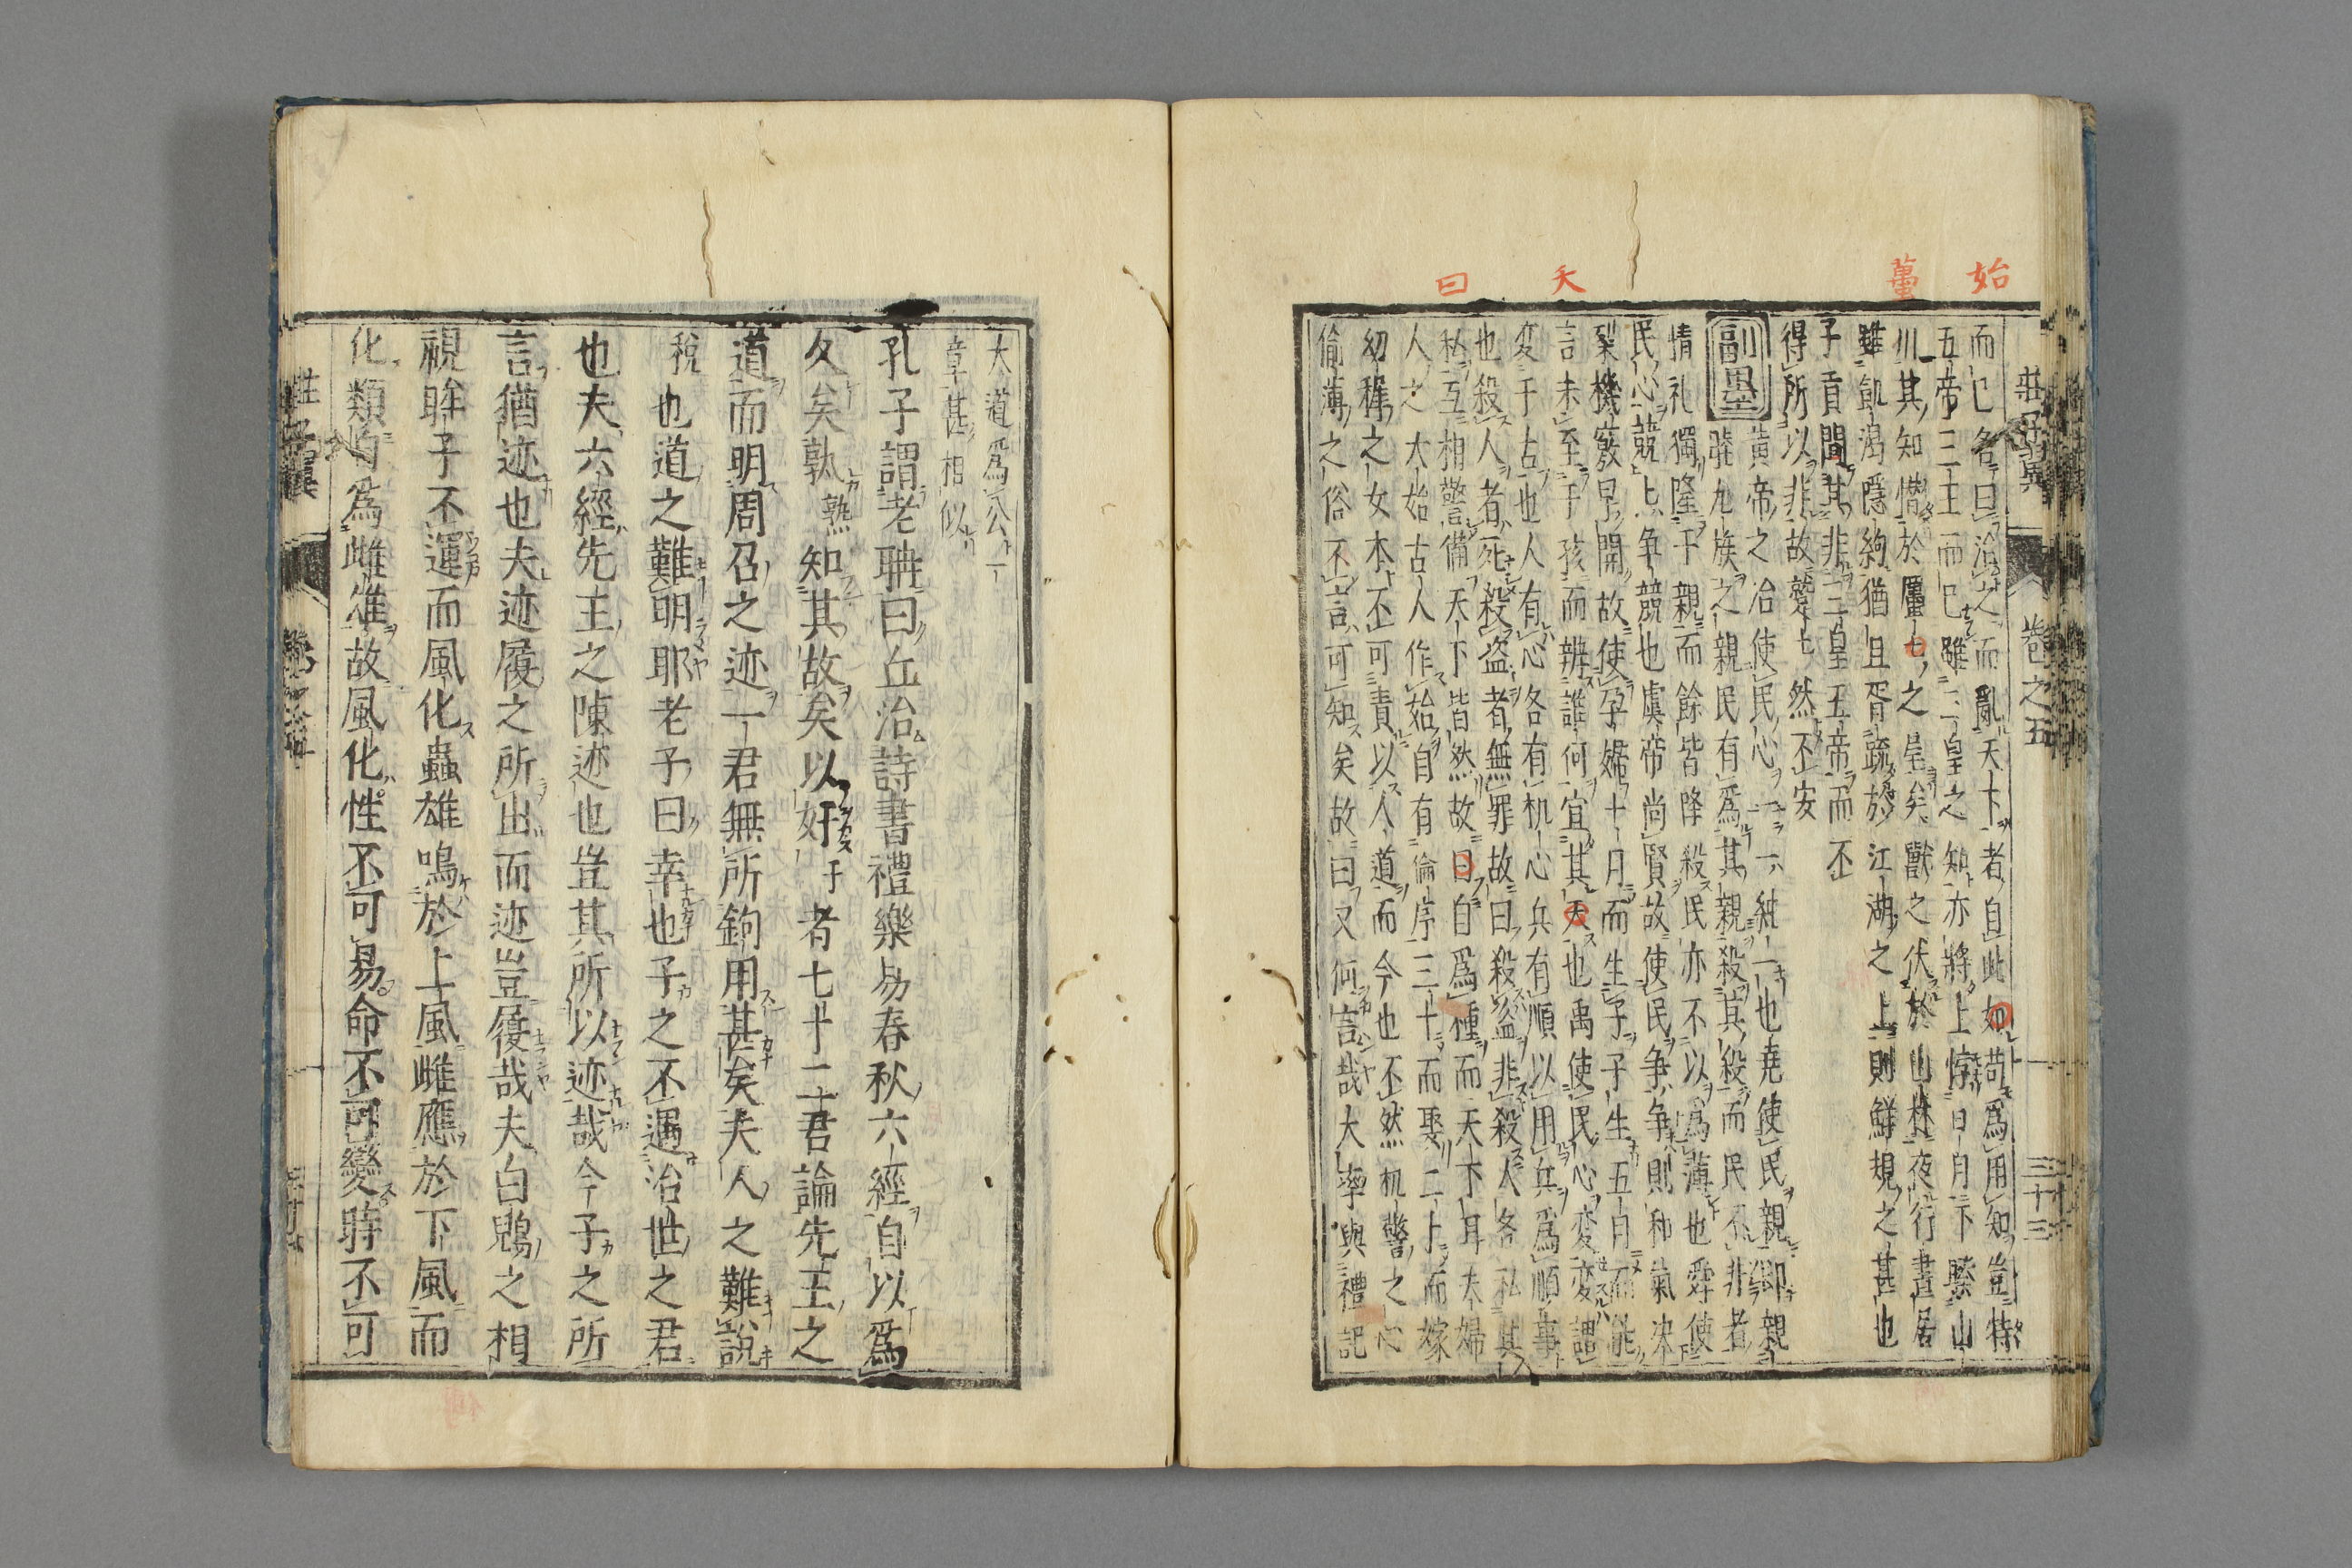 始
蠆
天
曰
莊子翼
卷之五
三十三
而已各曰治之而亂天下者自此如苟爲用知豈特
五帝三王而已雖三皇之知亦將上悖日月下睽山
川其知憯於蠆之皇矣獸之伏於山林夜行晝居
雖飢渴隱約猶且胥疏於江湖之上則鮮規之甚也
子貢聞其非三皇五帝而不
得所以非故蹵然不安
副墨
黃帝之治使民心一純一也堯使民親卽親
睦九族之親民有爲其親殺其殺而民不非者
情礼獨隆于親而餘皆降殺民亦不以爲薄也舜使
民心競競爭競也虞帝尚賢故使民爭爭則和氣决
裂機竅早開故使孕婦十月而生子子生五月而能
言未至于孩而辨誰何宜其夭也禹使民心変変謂
変于古也人有心各有机心兵有順以用兵爲順事
也殺人者死殺盜者無罪故曰殺盜非殺人各私其
私互相警備天下皆然故曰自爲種而天下耳夫婦
人之大始古人作始自有倫序三十而娶二十而嫁
幼穉之女本不可責以人道而今也不然机警之心
偷薄之俗不言可知矣故曰又何言哉大率與禮記
大道爲公一
章甚相似
孔子謂老聃曰丘治詩書禮樂易春秋六經自以爲
久矣孰熟知其故矣以奸干者七十二君論先王之
道而明周召之迹一君無所鉤用甚矣夫人之難說
稅也道之難明耶老子曰幸也子之不遇治世之君
也夫六經先王之陳迹也豈其所以迹哉今子之所
言猶迹也夫迹履之所出而迹豈履哉夫白鶂之相
視眸子不運而風化蟲雄鳴於上風雌應於下風而
化類自爲雌雄故風化性不可易命不可變時不可